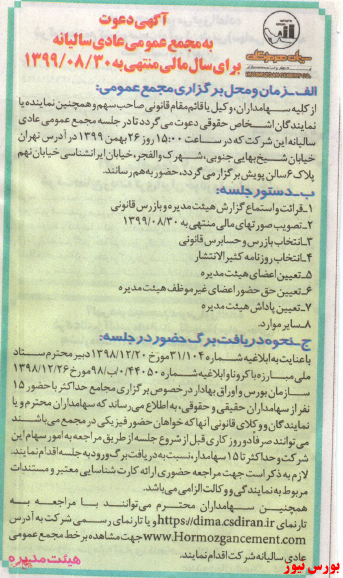 آگهی دعوت
به مجمع عمومی عادی سالیانه
برای سال مالی منتهی به ۱۳۹۹/۰۸/۳۰
سیمان هرمزگان
HORMOZGAN CEMENT CO.
الف-زمان و محل برگزاری مجمع عمومی:
از کلیه سهامداران، وکیل یا قائم مقام قانونی صاحب سهم و همچنین نماینده یا
نمایندگان اشخاص حقوقی دعوت می گردد تا در جلسه مجمع عمومی عادی
سالیانه این شرکت که در ساعت ۱۵:۰۰ روز ۲۶ بهمن ۱۳۹۹ در آدرس تهران
خیابان شیخ بهایی جنوبی، شهرک والفجر، خیابان ایرانشناسی خیابان نهم
پلاک ۶ سالن پویش برگزار می گردد، حضور به هم رسانند.
ب-دستور جلسه:
۱-قرائت و استماع گزارش هیئت مدیره و بازرس قانونی
۲-تصویب صورتهای مالی منتهی به ۱۳۹۹/۰۸/۳۰
۳-انتخاب بازرس و حسابرس قانونی
۴-انتخاب روزنامه کثیرالانتشار
۵-تعیین اعضای هیئت مدیره
۶-تعیین حق حضور اعضای غیر موظف هیئت مدیره
۷-تعیین پاداش هیئت مدیره
۸-سایر موارد.
ج-نحوه دریافت برگ حضور در جلسه:
با عنایت به ابلاغیه شماره ۳۱/۱۰۴ مورخ ۱۳۹۸/۱۲/۲۰ دبیر محترم ستاد
ملی مبارزه با کرونا و ابلاغیه شماره ۰/۴۴۰۵۰ب/۹۸ مورخ ۱۳۹۸/۱۲/۲۶
سازمان بورس و اوراق بهادار در خصوص برگزاری مجامع حداکثر با حضور ۱۵
نفر از سهامداران حقیقی و حقوقی، به اطلاع می رساند که سهامداران محترم و یا
نمایندگان و وکلای قانونی آنها که خواهان حضور فیزیکی در مجمع می باشند
می توانند صرفا دو روز کاری قبل از شروع جلسه از طریق مراجعه به امور سهام این
شرکت و حداکثر تا ۱۵ سهامدار، نسبت به دریافت برگ ورود به جلسه اقدام نمایند.
لازم به ذکر است جهت مراجعه حضوری ارائه کارت شناسایی معتبر و مستندات
مربوط به نمایندگی و وکالت الزامی می باشد.
همچنین سهامداران محترم می توانند با مراجعه به
تارنمای https://dima.csdiran.ir و یا تارنمای رسمی شرکت به آدرس
www.Hormozgancement.com جهت مشاهده بر خط مجمع عمومی
عادی سالیانه شرکت اقدام نمایند.
هیئت مدیره
بورس نیوز